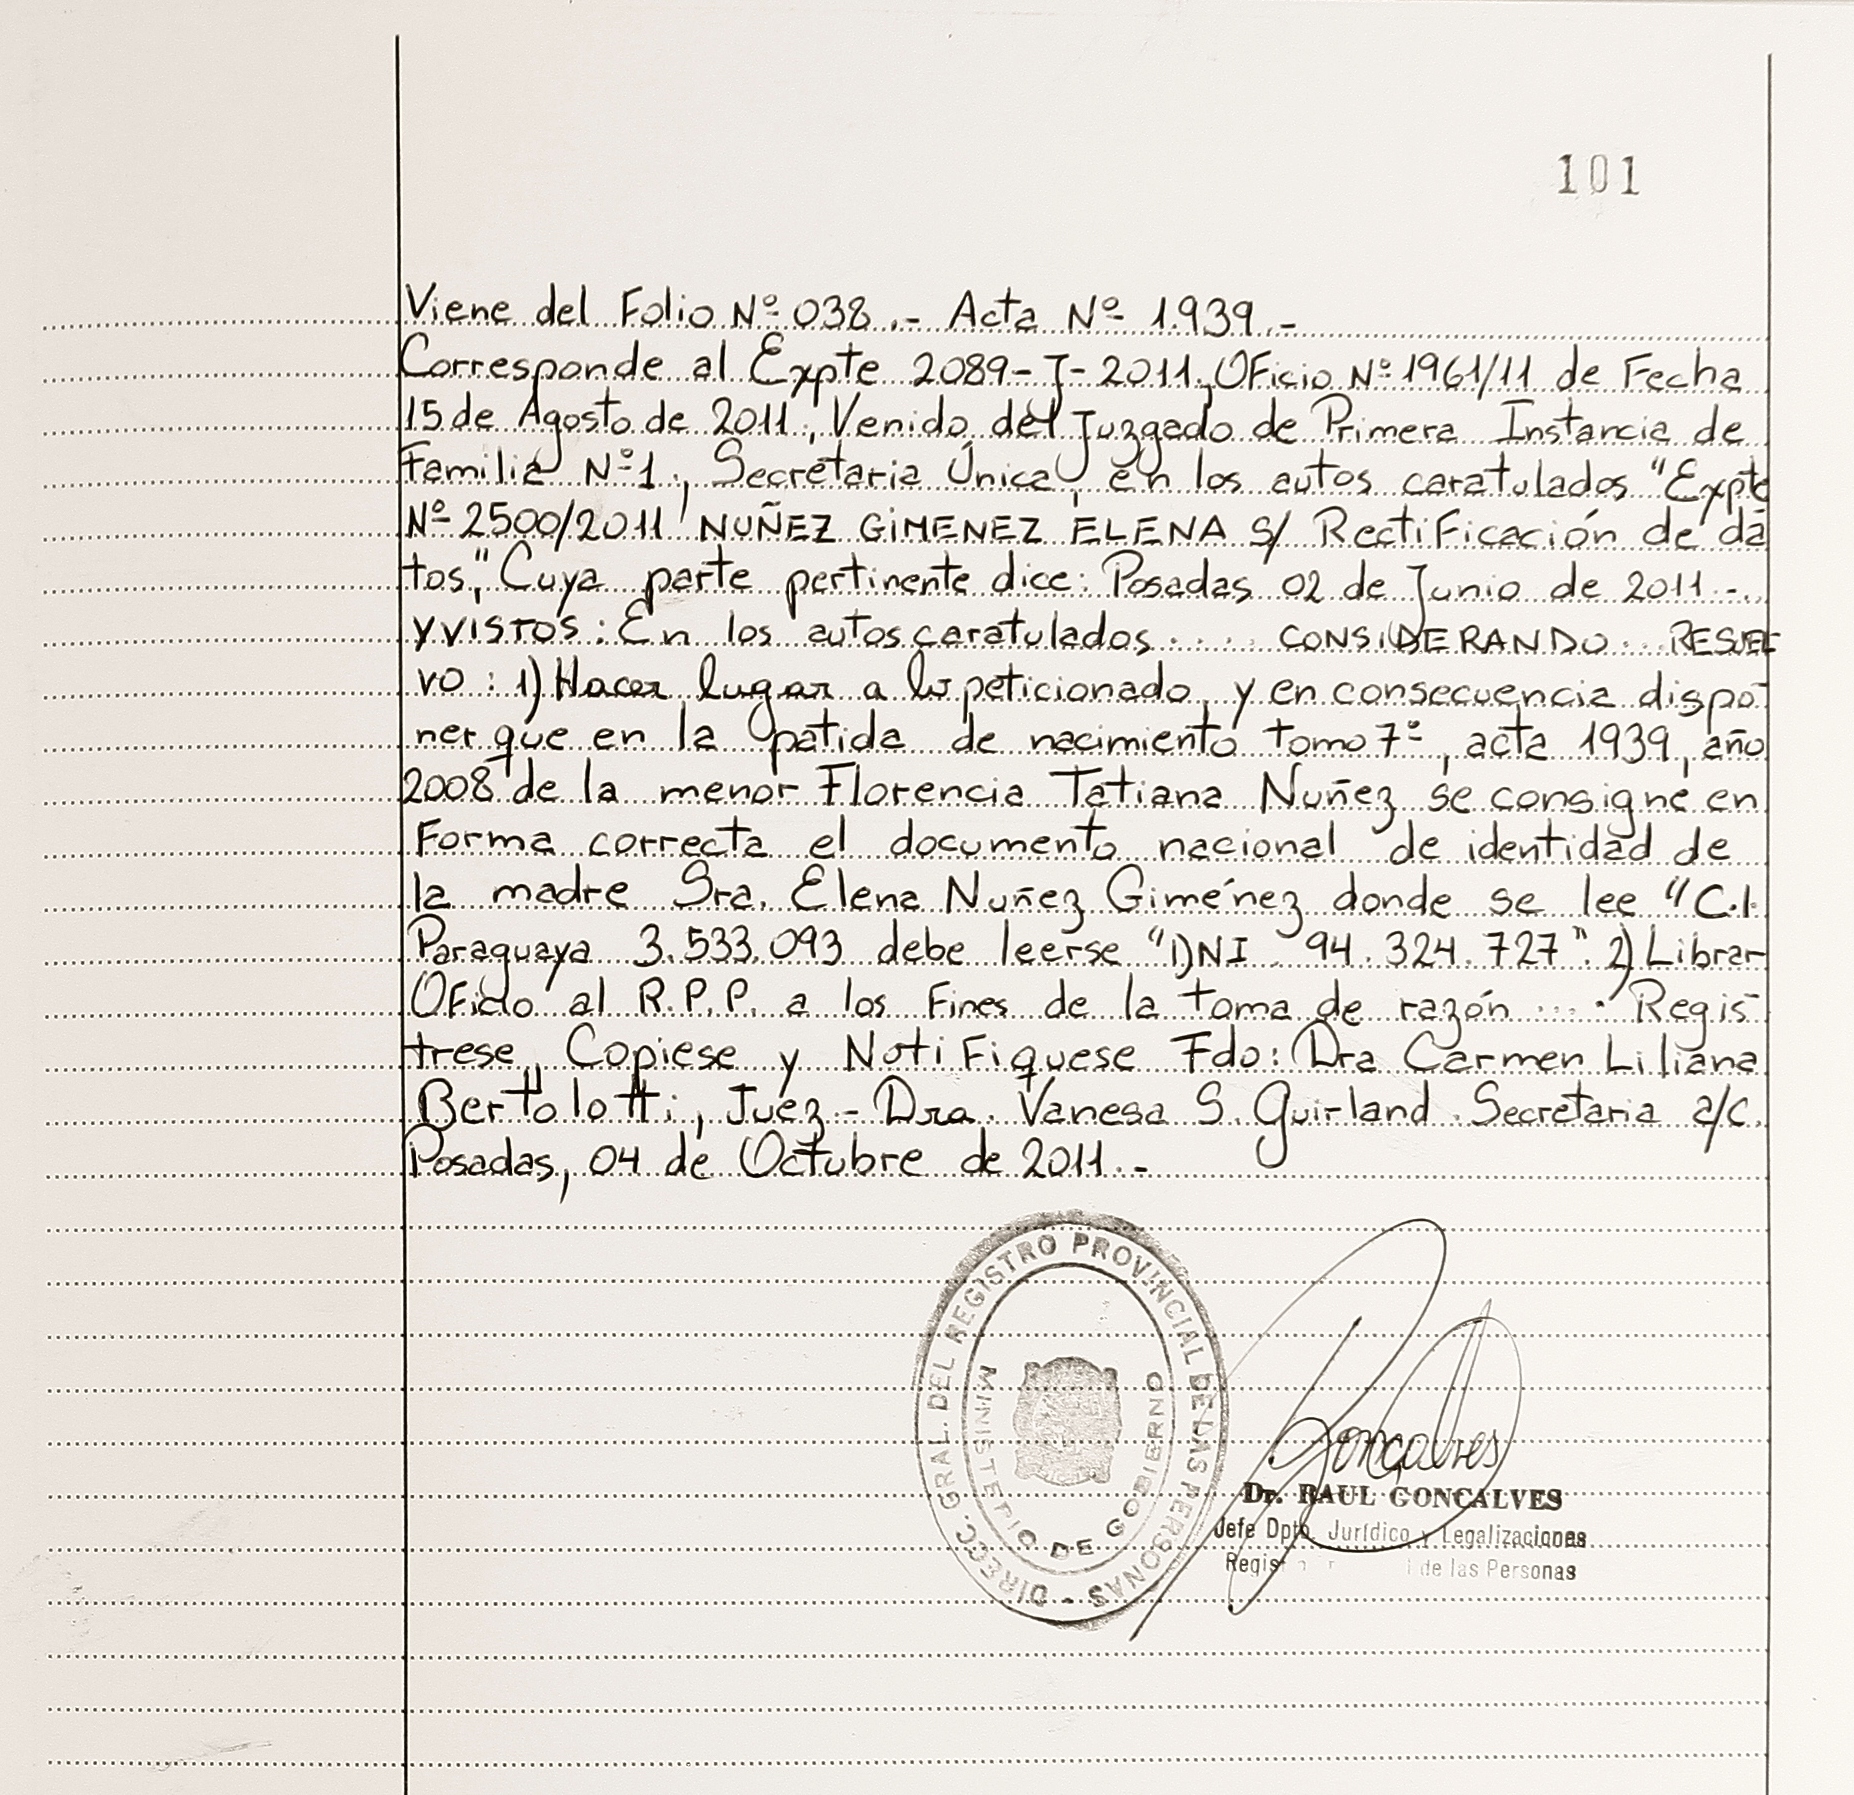 101
Viene del Folio Nº 038.- Acta Nº 1.939.-
Corresponde al Expte 2089-J-2011, Oficio Nº 1961/11 de Fecha
15 de Agosto de 2011, Venido del Juzgado de Primera Instancia de
Familia Nº1, Secretaria Única, en los autos caratulados "Expte
Nº 2500/2011 NUÑEZ GIMENEZ ELENA S/ Rectificación de da
tos," Cuya parte pertinente dice: Posadas 02 de Junio de 2011-..
Y VISTOS: En los autos caratulados..... CONSIDERANDO... RESUEL
VO: 1) Hacer lugar a lo peticionado, y en consecuencia dispo-
ner que en la patida de nacimiento tomo 7º, acta 1939, año
2008 de la menor Florencia Tatiana Nuñez se consigne en
Forma correcta el documento nacional de identidad de
la madre Sra. Elena Nuñez Giménez donde se lee "C.I.
Paraguaya 3.533.093 debe leerse "DNI 94.324.727". 2) Librar
Oficio al R.P.P. a los Fines de la toma de razón..... Regis-
trese, Copiese y NotiFiquese Fdo: Dra Carmen Liliana
Bertolotti, Juez- Dra. Vanesa S. Guirland. Secretaria a/c.
Posadas, 04 de Octubre de 2011.-
DIRECC. GRAL. DEL REGISTRO PROVINCIAL DE LAS PERSONAS -
MINISTERIO DE GOBIERNO
Goncalves
Dr. RAUL GONCALVES
Jefe Dpto. Jurídico y Legalizaciones
de las Personas